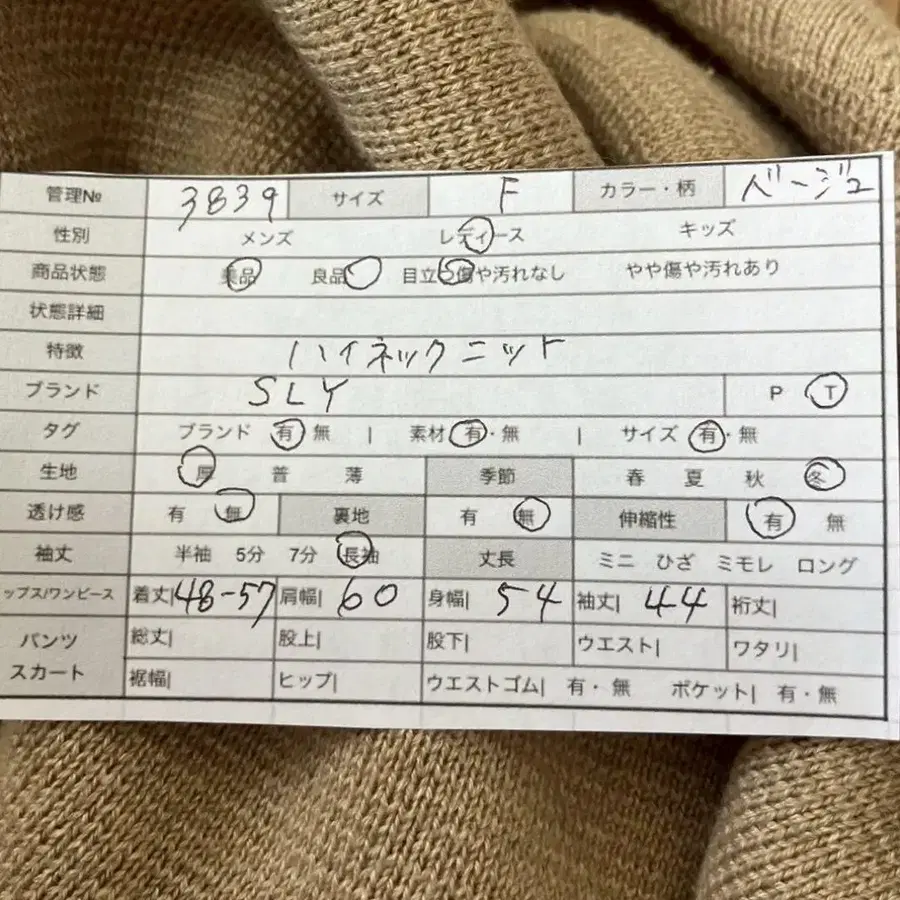 管理№ 3839 サイズ F カラー・柄 ベージュ
性別 メンズ レディース キッズ
商品状態 美品 良品 目立つ傷や汚れなし やや傷や汚れあり
状態詳細
特徴 ハイネックニット
ブランド SLY P T
タグ ブランド 有 無 | 素材 有・無 | サイズ 有・無
生地 厚 普 薄 季節 春 夏 秋 冬
透け感 有 無 裏地 有 無 伸縮性 有 無
袖丈 半袖 5分 7分 長袖 丈長 ミニ ひざ ミモレ ロング
ップス/ワンピース 着丈| 48-57 肩幅| 60 身幅| 54 袖丈| 44 裄丈|
パンツ 総丈| 股上| 股下| ウエスト| ワタリ|
スカート 裾幅| ヒップ| ウエストゴム| 有・無 ポケット| 有・無